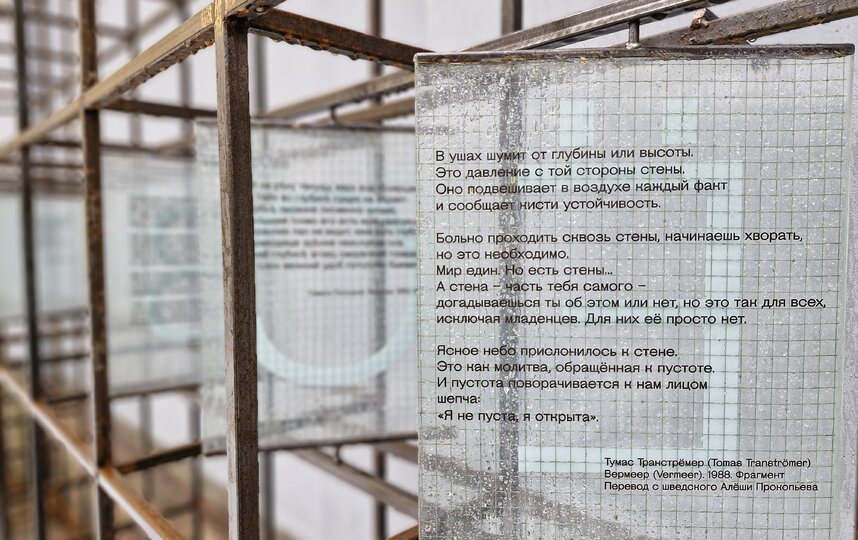 В ушах шумит от глубины или высоты.
Это давление с той стороны стены.
Оно подвешивает в воздухе каждый факт
и сообщает кисти устойчивость.
Больно проходить сквозь стены, начинаешь хворать,
но это необходимо.
Мир един. Но есть стены...
А стена – часть тебя самого –
догадываешься ты об этом или нет, но это так для всех,
исключая младенцев. Для них её просто нет.
Ясное небо прислонилось к стене.
Это как молитва, обращённая к пустоте.
И пустота поворачивается к нам лицом
шепча:
«Я не пуста, я открыта».
Тумас Транстрёмер (Tomas Tranströmer)
Вермеер (Vermeer). 1988. Фрагмент
Перевод с шведского Алёши Прокопьева